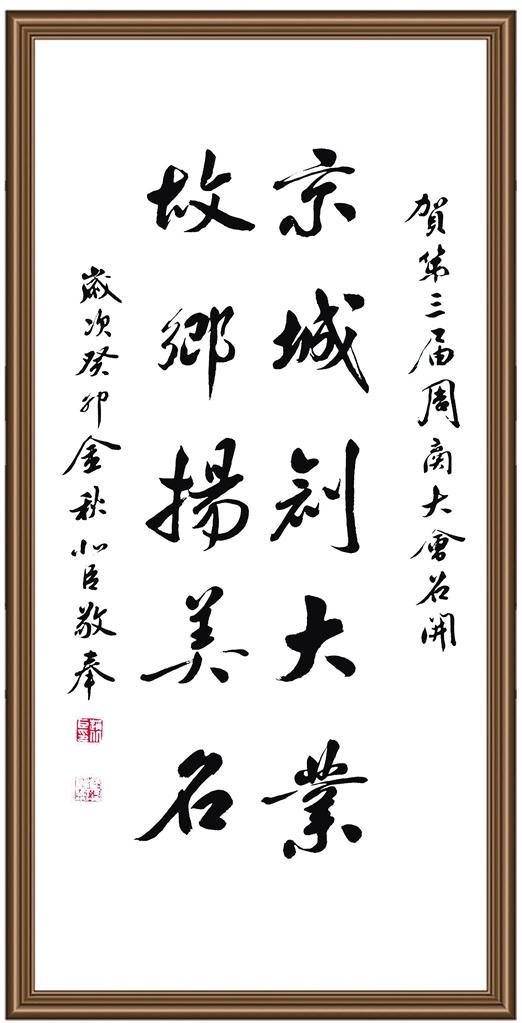 賀第三届周商大會召開
京城創大業
故鄉揚美名
歲次癸卯金秋小臣敬奉